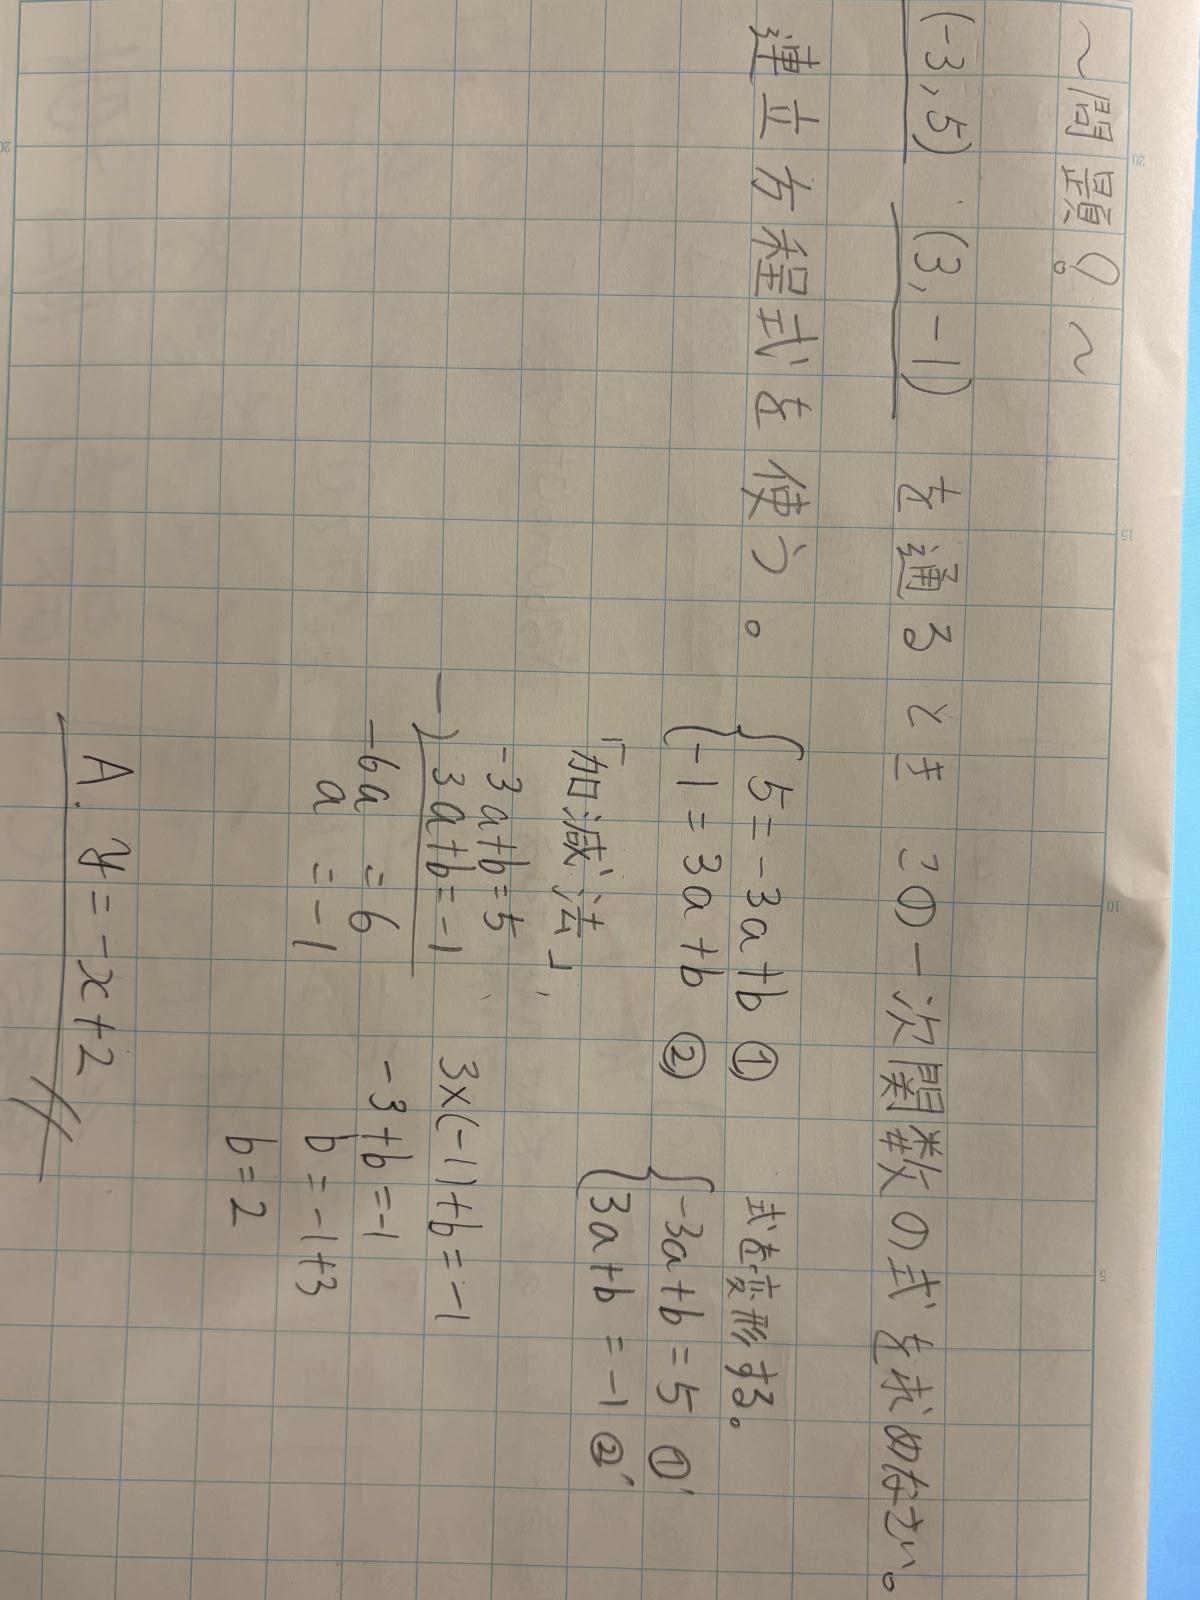 ~問題Q。~
(-3,5)、(3,-1) を通るとき この一次関数の式を求めなさい。
連立方程式を使う。
5=-3a+b ①
-1=3a+b ②
式を変形する。
-3a+b=5 ①'
3a+b=-1 ②'
「加減法」
-3a+b=5
-) 3a+b=-1
-6a =6
a =-1
3×(-1)+b=-1
-3+b=-1
b=-1+3
b=2
A. y=-x+2
20
15
10
5
20